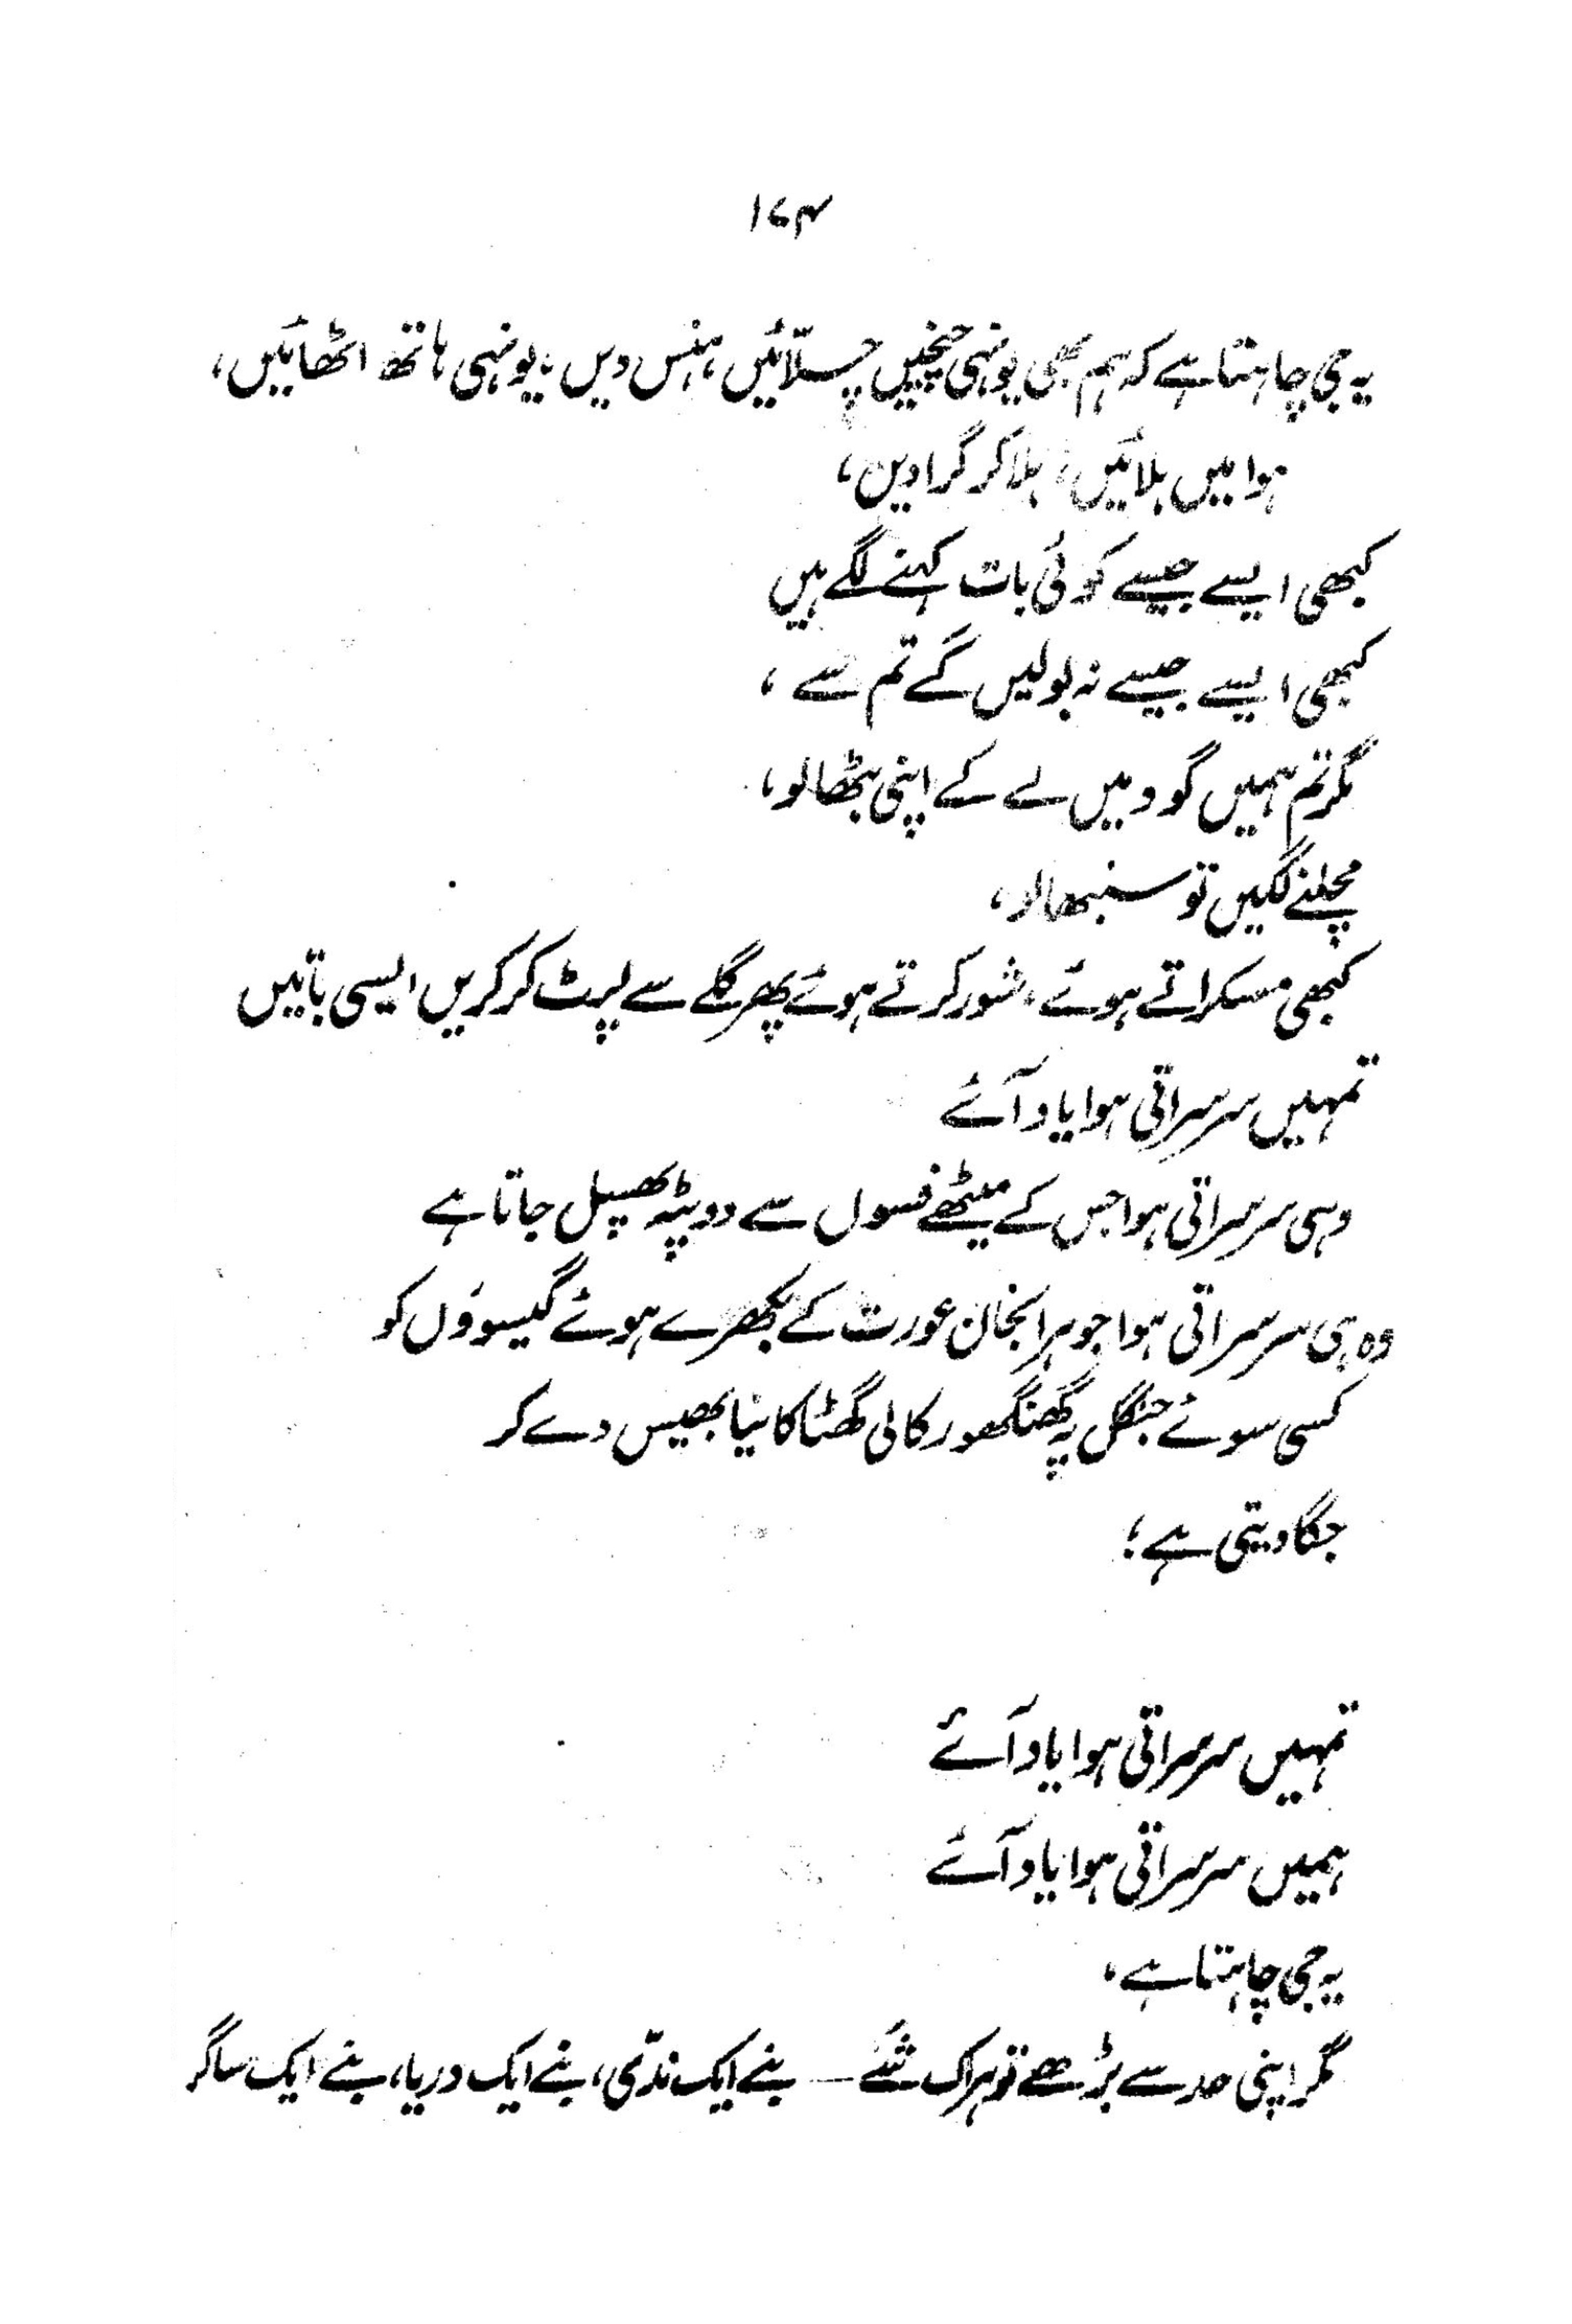 ۱۷۴
یہ جی چاہتا ہے کہ ہم بھی یونہی چیخیں چلّائیں، ہنس دیں، یونہی ہاتھ اٹھائیں،
ہوا میں ہلائیں، ہلا کر گرا دیں،
کبھی ایسے جیسے کوئی بات کہنے لگے ہیں
کبھی ایسے جیسے نہ بولیں گے تم سے،
مگر تم ہمیں گود میں لے کے اپنی بٹھا لو،
مچلنے لگیں تو سنبھالو،
کبھی مسکراتے ہوئے، شور کرتے ہوئے پھر گلے سے لپٹ کر کریں ایسی باتیں
تمہیں سرسراتی ہوا یاد آئے
وہی سرسراتی ہوا جس کے میٹھے فسوں سے دوپٹہ پھسل جاتا ہے
وہ ہی سرسراتی ہوا جو ہر انجان عورت کے بکھرے ہوئے گیسوؤں کو
کسی سوئے جنگل پہ گھنگھور کالی گھٹا کا نیا بھیس دے کر
جگا دیتی ہے؛
تمہیں سرسراتی ہوا یاد آئے
ہمیں سرسراتی ہوا یاد آئے
یہ جی چاہتا ہے،
مگر اپنی حد سے بڑھے تو ہر اک شئے — بنے ایک ندّی، بنے ایک دریا، بنے ایک ساگر